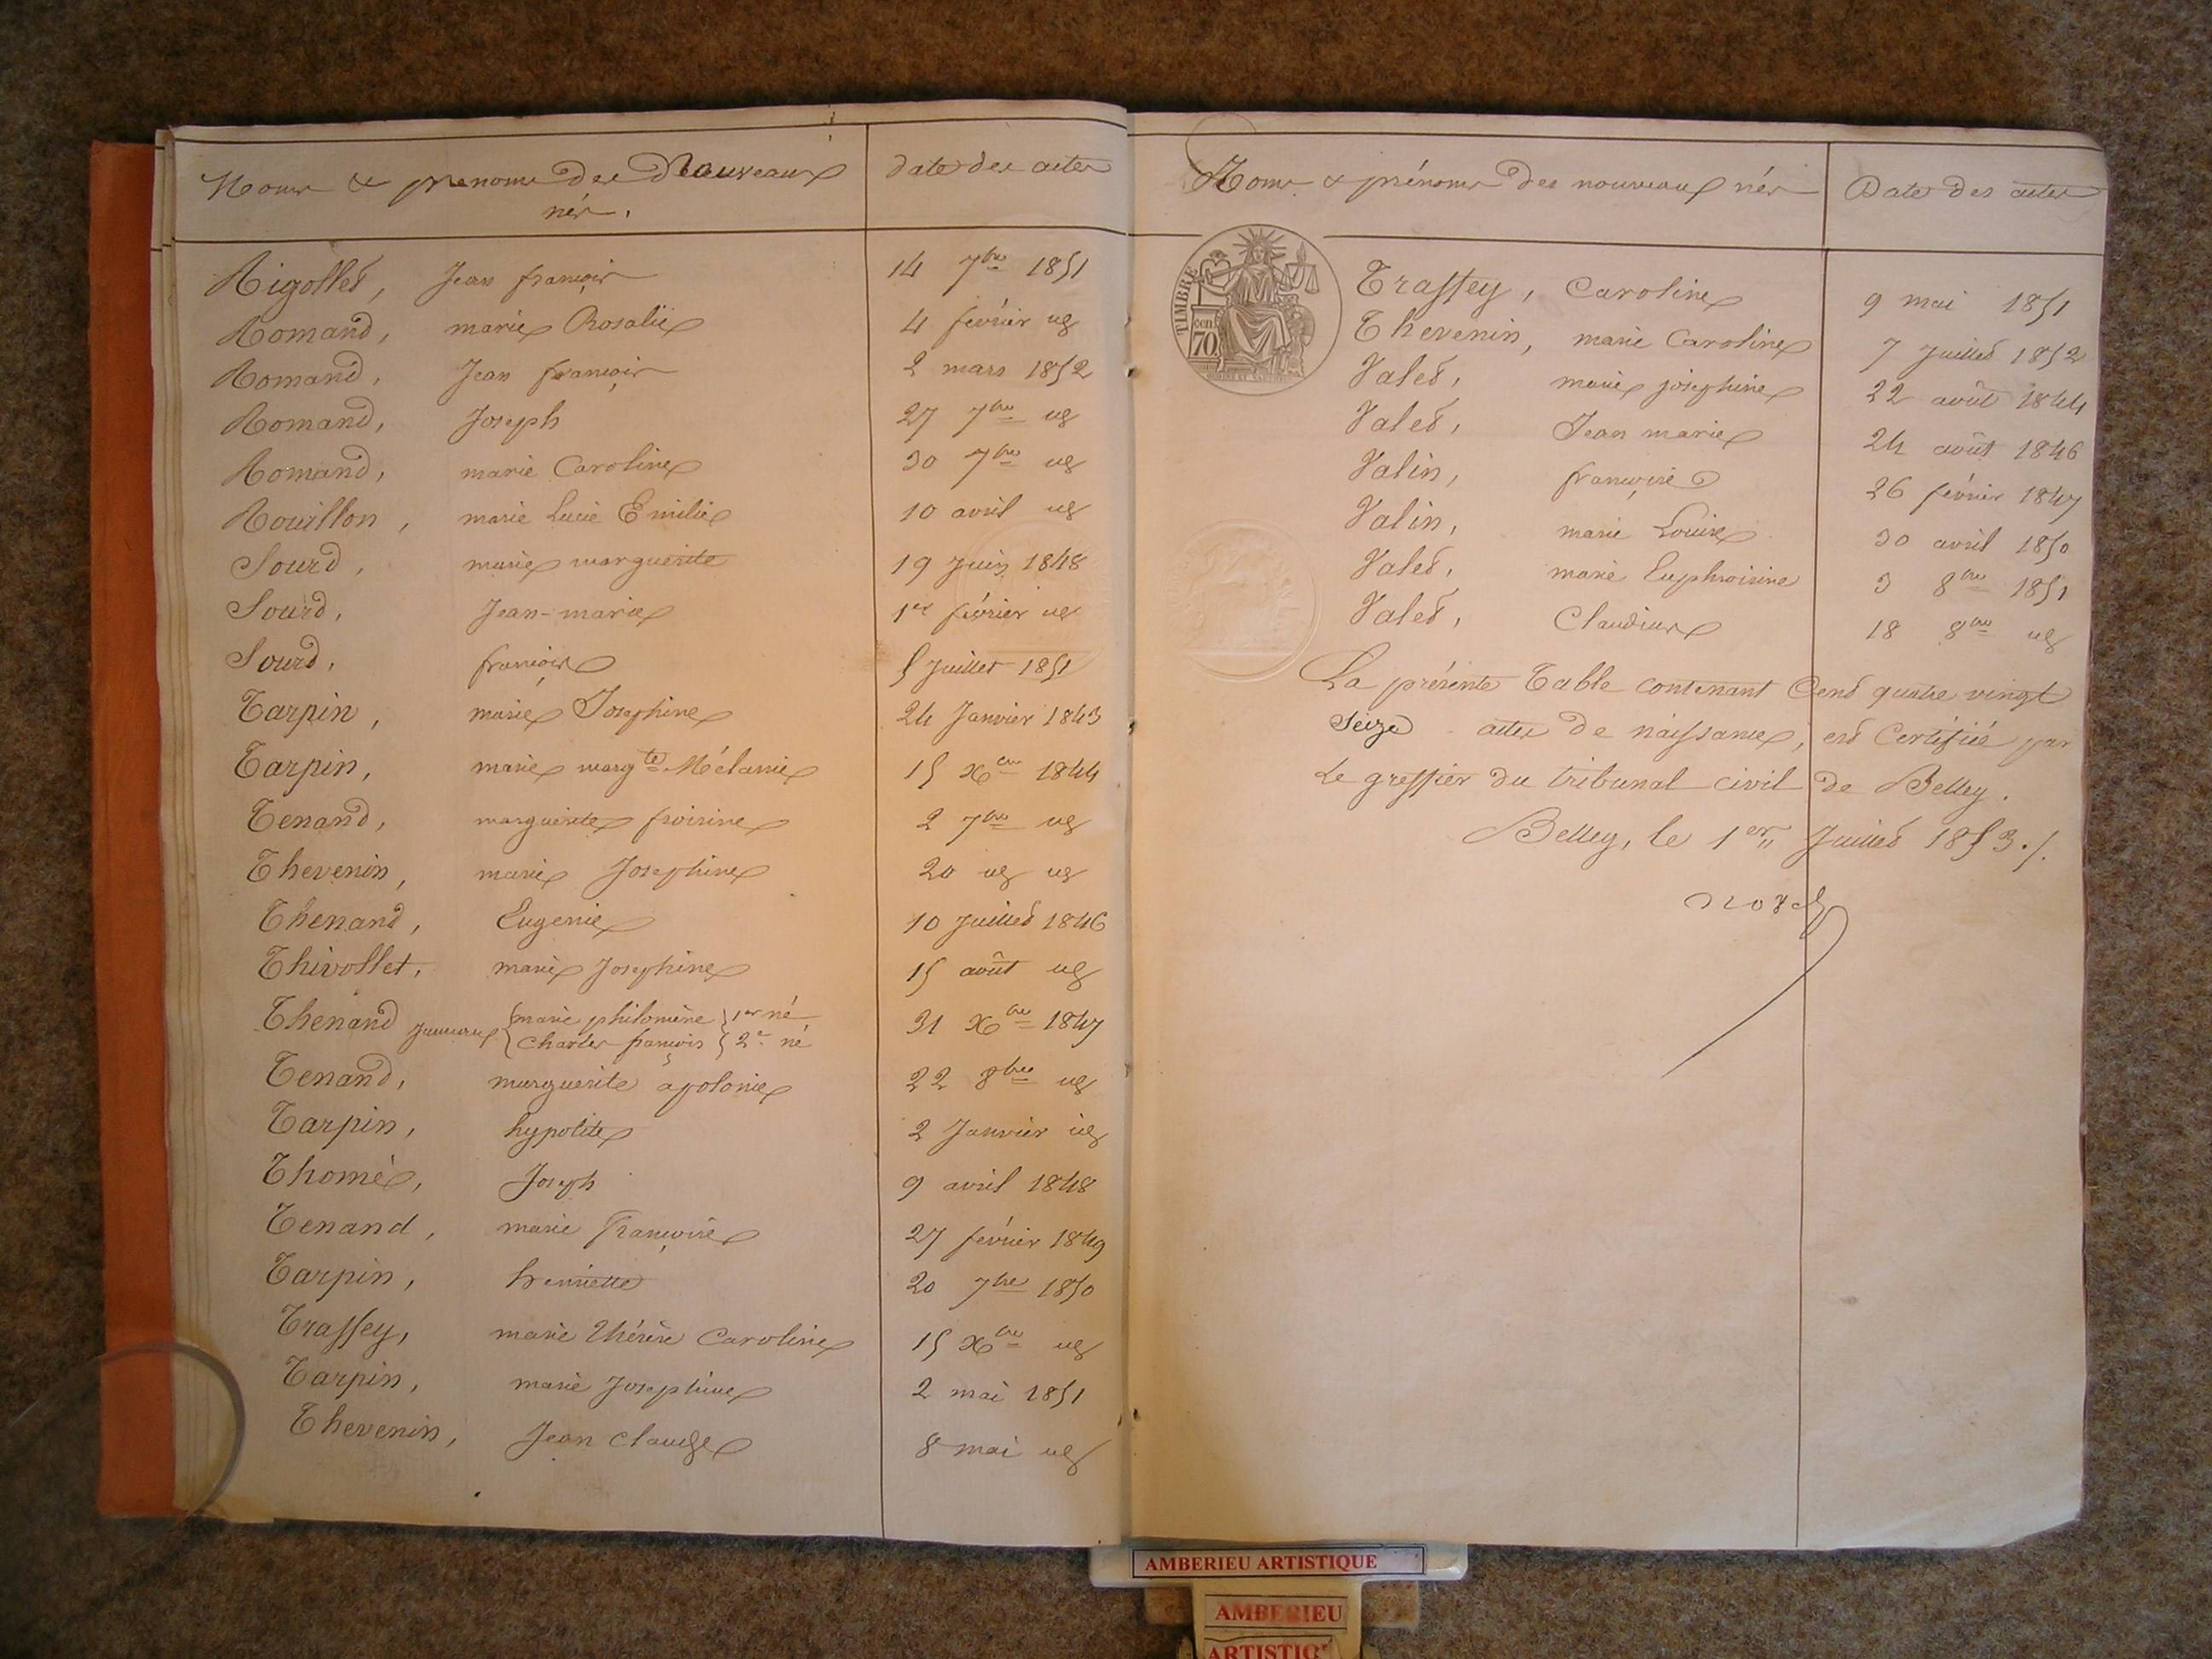 Noms & prenoms des Nouveaux
nés.
date des actes
Rigollet, Jean françois 14 7bre 1851
Romand, marie Rosalie 4 février id
Romand, Jean françois 2 mars 1852
Romand, Joseph 27 7bre id
Romand, marie Caroline 30 7bre id
Rouillon, marie Lucie Emilie 10 avril id
Sourd, marie marguerite 19 Juin 1848
Sourd, Jean-marie 1er février id
Sourd, françois 5 Juillet 1851
Tarpin, marie Josephine 24 Janvier 1843
Tarpin, marie margte Mélanie 15 Xbre 1844
Tenand, marguerite froisine 2 7bre id
Thevenin, marie Josephine 20 id id
Thenand, Eugenie 10 Juillet 1846
Thivollet, marie Josephine 15 août id
Thenand Jumeaux { marie philomène } 1er né 31 Xbre 1847
{ Charles françois } 2e né
Tenand, marguerite apolonie 22 8bre id
Tarpin, hypolite 2 Janvier id
Thomé, Joseph 9 avril 1848
Tenand, marie Françoise 27 février 1849
Tarpin, henriette 20 7bre 1850
Trassey, marie Thérèse Caroline 15 Xbre id
Tarpin, marie Josephine 2 mai 1851
Thevenin, Jean Claude 8 mai id
Noms & prénoms des nouveaux nés
Date des actes
TIMBRE
70 cen
Trassey, Caroline 9 mai 1851
Thevenin, marie Caroline 7 Juillet 1852
Valet, marie josephine 22 août 1844
Valet, Jean marie 24 août 1846
Valin, françoise 26 février 1847
Valin, marie Louise 30 avril 1850
Valet, marie Euphroisine 3 8bre 1851
Valet, Claudius 18 8bre id
La présente Table contenant Cent quatre vingt
Seize actes de naissance, est Certifiée par
le greffier du tribunal civil de Belley.
Belley, le 1er Juillet 1853./.
AMBERIEU ARTISTIQUE
AMBERIEU
ARTISTIQ